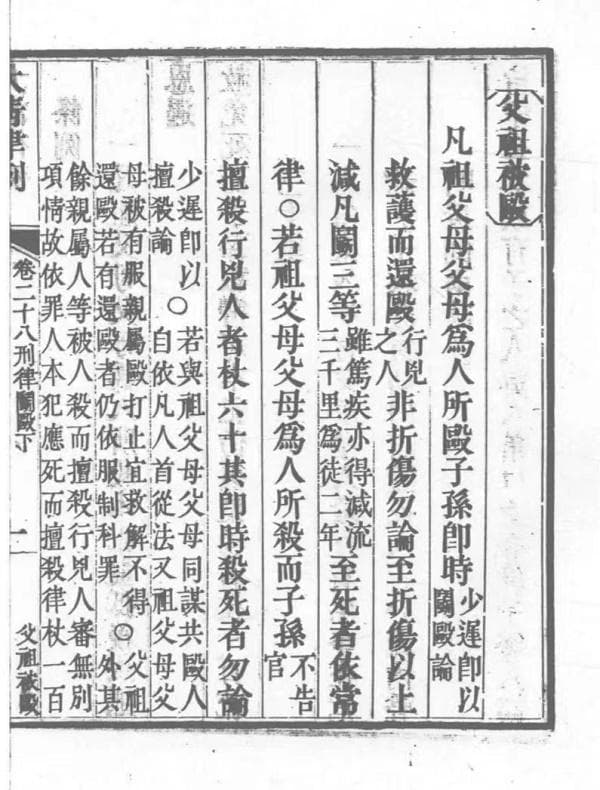 父祖被毆
凡祖父母父母爲人所毆子孫卽時少遲卽以鬭毆論
救護而還毆行兇之人非折傷勿論至折傷以上
減凡鬭三等雖篤疾亦得減流三千里爲徒二年至死者依常
律○若祖父母父母爲人所殺而子孫不告官
擅殺行兇人者杖六十其卽時殺死者勿論
少遲卽以擅殺論○若與祖父母父母同謀共毆人自依凡人首從法又祖父母父
母被有服親屬毆打止宜救解不得還毆若有還毆者仍依服制科罪○父祖外其
餘親屬人等被人殺而擅殺行兇人審無別項情故依罪人本犯應死而擅殺律杖一百
大清律例 卷二十八刑律鬭毆下 一 父祖被毆